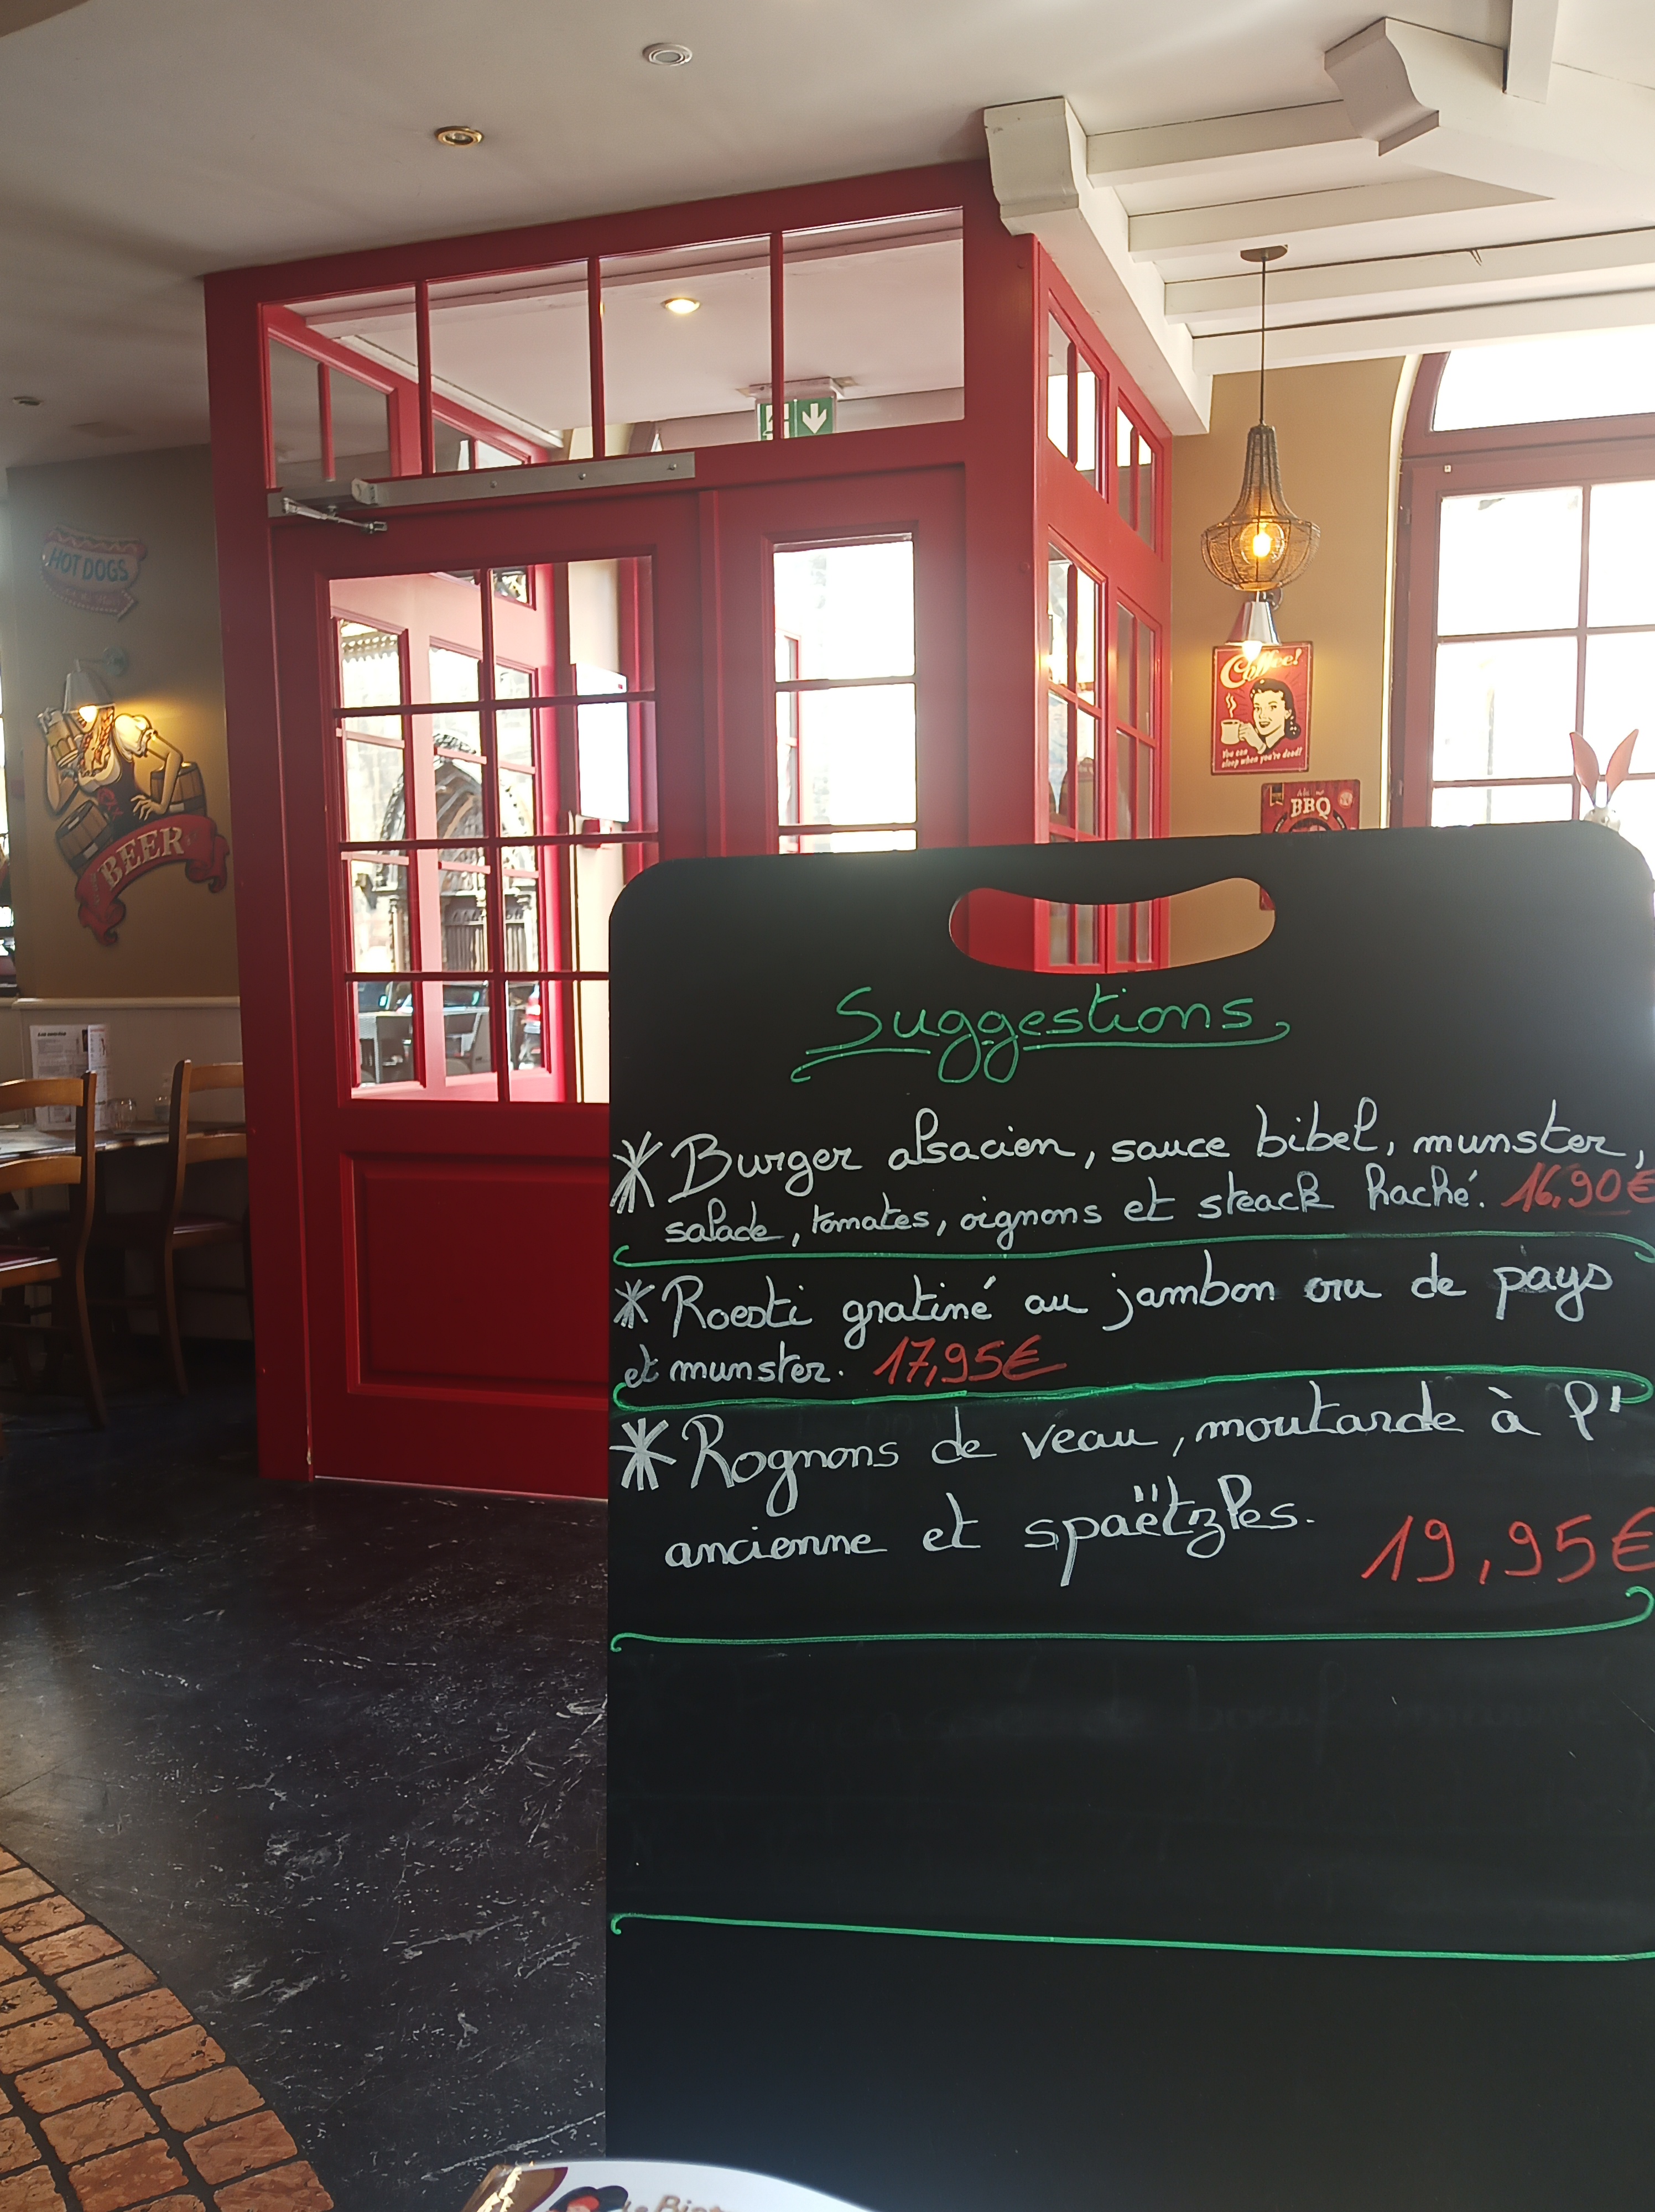 HOT DOGS
BEER
Coffee!
You can
sleep when you're dead!
BBQ
Suggestions
Burger alsacien, sauce bibel, munster,
salade, tomates, oignons et steack haché. 16,90€
Roesti gratiné au jambon cru de pays
et munster. 17,95€
Rognons de veau, moutarde à l'
ancienne et spaëtzles.
19,95€